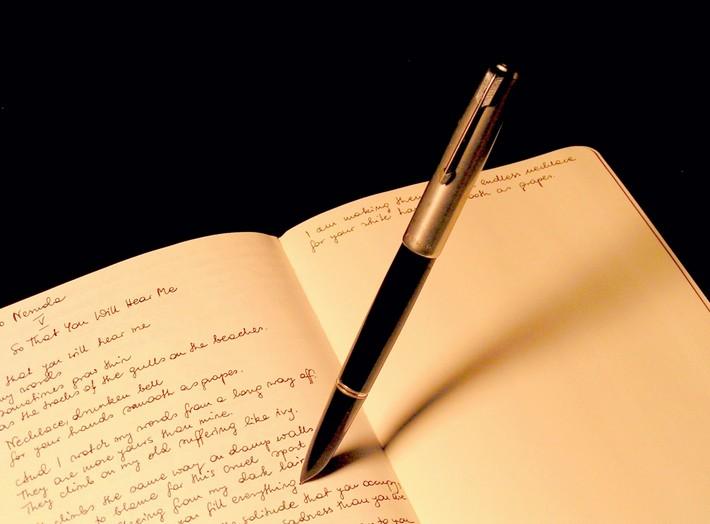 o Neruda
V
So That You Will Hear Me
that you will hear me
my words
sometimes grow thin
as the tracks of the gulls on the beaches.
Necklace, drunken bell
for your hands smooth as grapes.
And I watch my words from a long way off.
They are more yours than mine.
They climb on my old suffering like ivy.
climbs the same way on damp walls
to blame for this cruel sport
fleeing from my dark lair
you fill everything
the solitude that you occupy
sadness than you are
to you
I am making them endless necklace
for your white ha ooth as grapes.